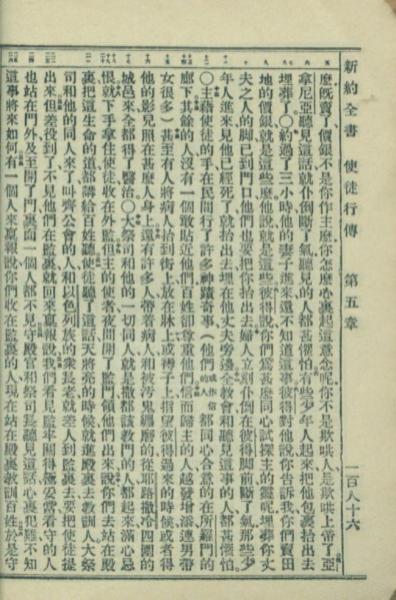 新約全書 使徒行傳 第五章 一百八十六
麽旣賣了價銀不是你作主麽你怎麽心裏起這意念呢你不是欺哄人是欺哄上帝了亞
拿尼亞聽見這話就仆倒斷了氣聽見的人都甚懼怕有些少年人起來把他包裹抬出去
埋葬了〇約過了三小時他的妻子進來還不知道這事彼得對他說你告訴我你們賣田
地的價銀就是這些麽他說就是這些彼得說你們爲甚麽同心試探主的靈呢埋葬你丈
夫之人的脚已到門口他們也要把你抬出去婦人立刻仆倒在彼得脚前斷了氣那些少
年人進來見他已經死了就抬出去埋在他丈夫旁邊全敎會和聽見這事的人都甚懼怕
〇主藉使徒的手在民間行了許多神蹟奇事（他們或作信的人都同心合意的在所羅門的
廊下其餘的人沒有一個敢貼近他們百姓卻尊重他們信而歸主的人越發增添連男帶
女很多）甚至有人將病人抬到街上放在牀上或褥子上指望彼得過來的時候或者得
他的影兒照在甚麽人身上還有許多人帶着病人和被汚鬼纏磨的從耶路撒冷四圍的
城邑來全都得了醫治〇大祭司和他的一切同人就是撒都該敎門的人都起來滿心忌
恨就下手拿住使徒收在外監但主的使者夜間開了監門領他們出來說你們去站在殿
裏把這生命的道都講給百姓聽使徒聽了這話天將亮的時候就進殿裏去敎訓人大祭
司和他的同人來了叫齊公會的人和以色列族的衆長老就差人到監裏去要把使徒提
出來但差役到了不見他們在監裏就回來禀報說我們看見監牢關得極妥當看守的人
也站在門外及至開了門裏面一個人都不見守殿官和祭司長聽見這話心裏犯難不知
這事將來如何有一個人來禀報說你們收在監裏的人現在站在殿裏敎訓百姓於是守